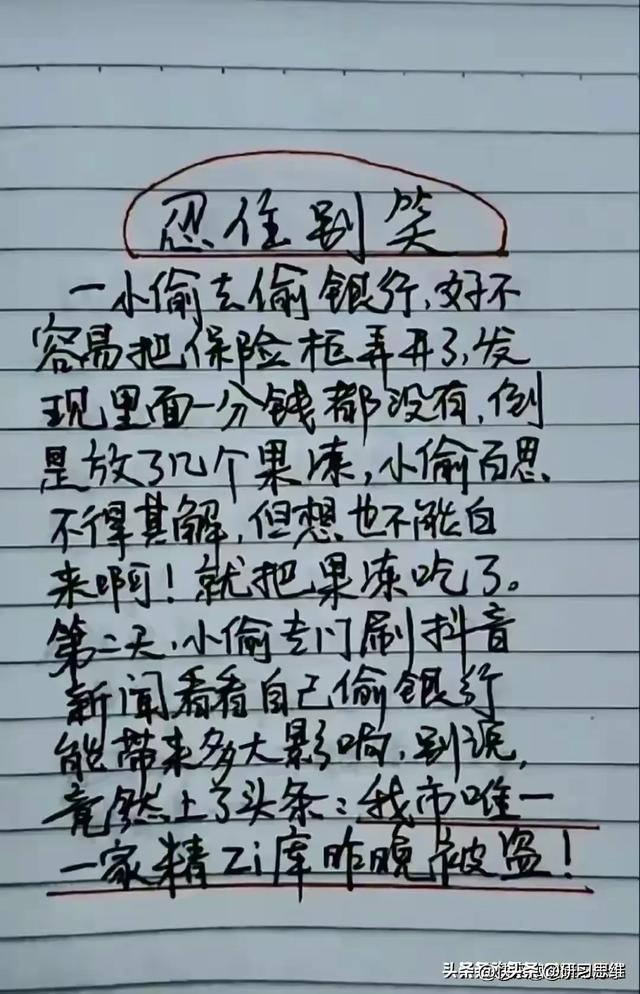 忍住别笑
一小偷去偷银行,好不
容易把保险柜弄开了,发
现里面一分钱都没有,倒
是放了几个果冻,小偷百思
不得其解,但想也不能白
来啊!就把果冻吃了。
第二天,小偷专门刷抖音
新闻看看自己偷银行
能带来多大影响,别说,
竟然上了头条:我市唯一
一家精Zi库昨晚被盗!
头条@研习思维